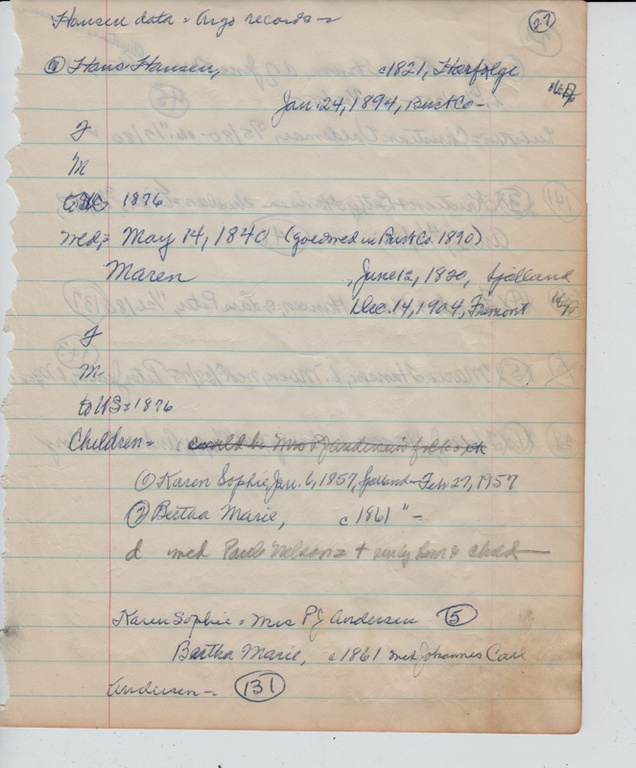 Hansen data = Argo records =
27
① Hans Hansen, c1821, Harfolge
Jan. 24, 1894, Burt Co -
F
M
to US 1876
med = May 14, 1840 (gold med in Burt Co. 1890)
Maren , June 12, 1820, Sjelland
Dec. 14, 1904, Fremont
F
M -
to US = 1876
Children =
① Karen Sophie Jan. 6, 1857, Sjelland - Feb 27, 1957
② Bertha Marie, c 1861 " -
d med + only hom & child
Karen Sophie = Mrs PJ Andersen 5
Bertha Marie, c1861 med Johannes Carl
Andersen - 131